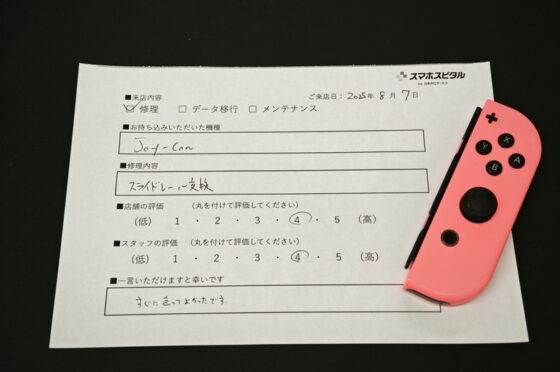 スマホスピタル
■来店内容
ご来店日: 2025年 8月 7日
修理 □ データ移行 □ メンテナンス
■お持ち込みいただいた機種
Joy-Con
■修理内容
スライドレール交換
■店舗の評価 (丸を付けて評価してください)
(低) 1 ・ 2 ・ 3 ・ 4 ・ 5 (高)
■スタッフの評価 (丸を付けて評価してください)
(低) 1 ・ 2 ・ 3 ・ 4 ・ 5 (高)
■一言いただけますと幸いです
すぐに直ってよかったです。
X
Y
A
B